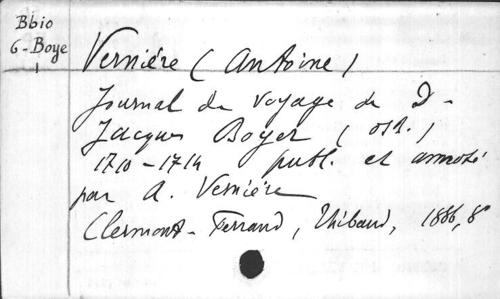 Bbio
6-Boye
1
Vernière (Antoine)
Journal de voyage de D.
Jacques Boyer (osb.)
1710-1714 publ. et annoté
par A. Vernière
Clermont-Ferrand, Thibaud, 1886, 8°